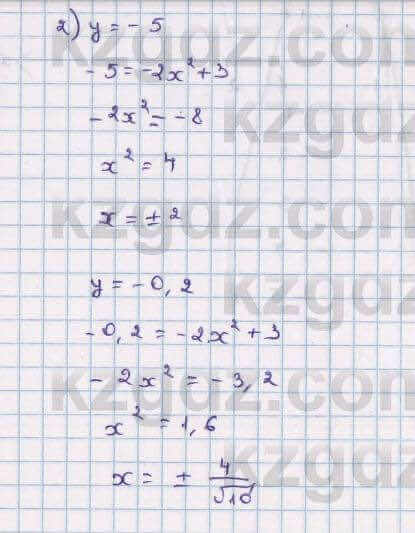 2) y = - 5
- 5 = -2x² + 3
- 2x² = - 8
x² = 4
x = ± 2
y = - 0,2
- 0,2 = - 2x² + 3
- 2x² = - 3,2
x² = 1,6
x = ± 4/√10
kzgdz.com
kzgdz.com
kzgdz.com
kzgdz.com
kzgdz.com
kzgdz.com